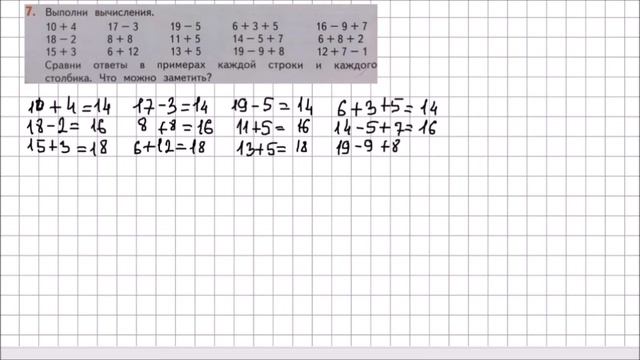 7. Выполни вычисления.
10 + 4 17 − 3 19 − 5 6 + 3 + 5 16 − 9 + 7
18 − 2 8 + 8 11 + 5 14 − 5 + 7 6 + 8 + 2
15 + 3 6 + 12 13 + 5 19 − 9 + 8 12 + 7 − 1
Сравни ответы в примерах каждой строки и каждого
столбика. Что можно заметить?
10 + 4 = 14 17 - 3 = 14 19 - 5 = 14 6 + 3 + 5 = 14
18 - 2 = 16 8 + 8 = 16 11 + 5 = 16 14 - 5 + 7 = 16
15 + 3 = 18 6 + 12 = 18 13 + 5 = 18 19 - 9 + 8